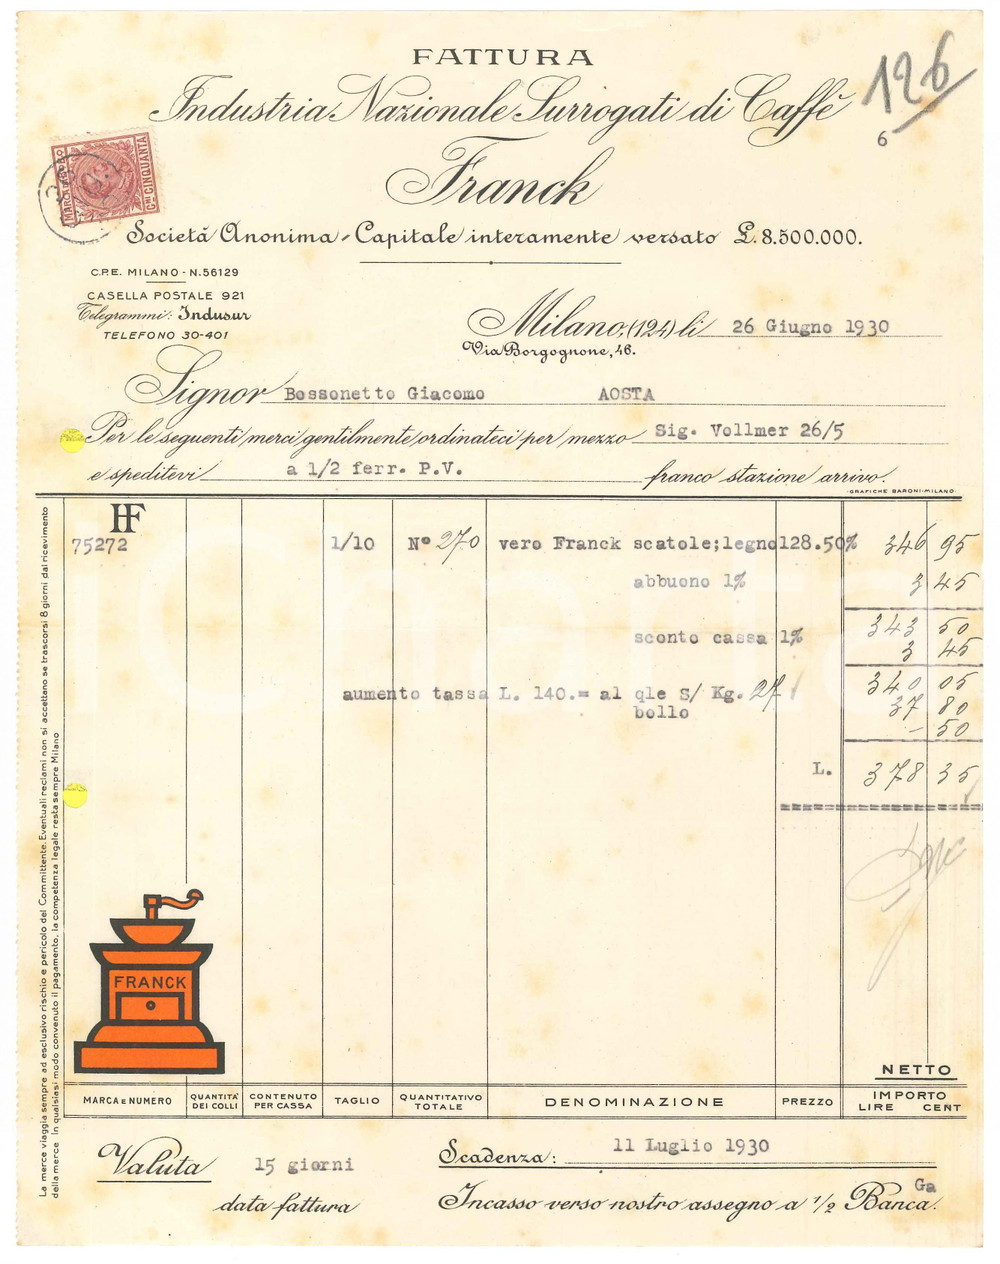 FATTURA
Industria Nazionale Surrogati di Caffè
Franck
Società Anonima - Capitale interamente versato £. 8.500.000.
126
6
MARCA DA BOLLO
Cmi CINQUANTA
C.P.E. MILANO - N. 56129
CASELLA POSTALE 921
Telegrammi: Indusur
TELEFONO 30-401
Milano, (124) li 26 Giugno 1930
Via Borgognone, 46.
Signor Bossonetto Giacomo AOSTA
Per le seguenti merci gentilmente ordinateci per mezzo Sig. Vollmer 26/5
e speditevi a 1/2 ferr. P.V. franco stazione arrivo.
GRAFICHE BARONI-MILANO
HF
75272 1/10 N° 270 vero Franck scatole;legno 128.50% 346 95
abbuono 1% 3 45
343 50
sconto cassa 1% 3 45
340 05
aumento tassa L. 140.= al qle S/ Kg. 27 37 80
bollo - 50
L. 378 35
La merce viaggia sempre ad esclusivo rischio e pericolo del Committente. Eventuali reclami non si accettano se trascorsi 8 giorni dal ricevimento
della merce In qualsiasi modo convenuto il pagamento, la competenza legale resta sempre Milano
FRANCK
NETTO
MARCA E NUMERO QUANTITÀ DEI COLLI CONTENUTO PER CASSA TAGLIO QUANTITATIVO TOTALE DENOMINAZIONE PREZZO IMPORTO
LIRE CENT
Valuta 15 giorni Scadenza: 11 Luglio 1930
data fattura Incasso verso nostro assegno a 1/2 Banca. Ga